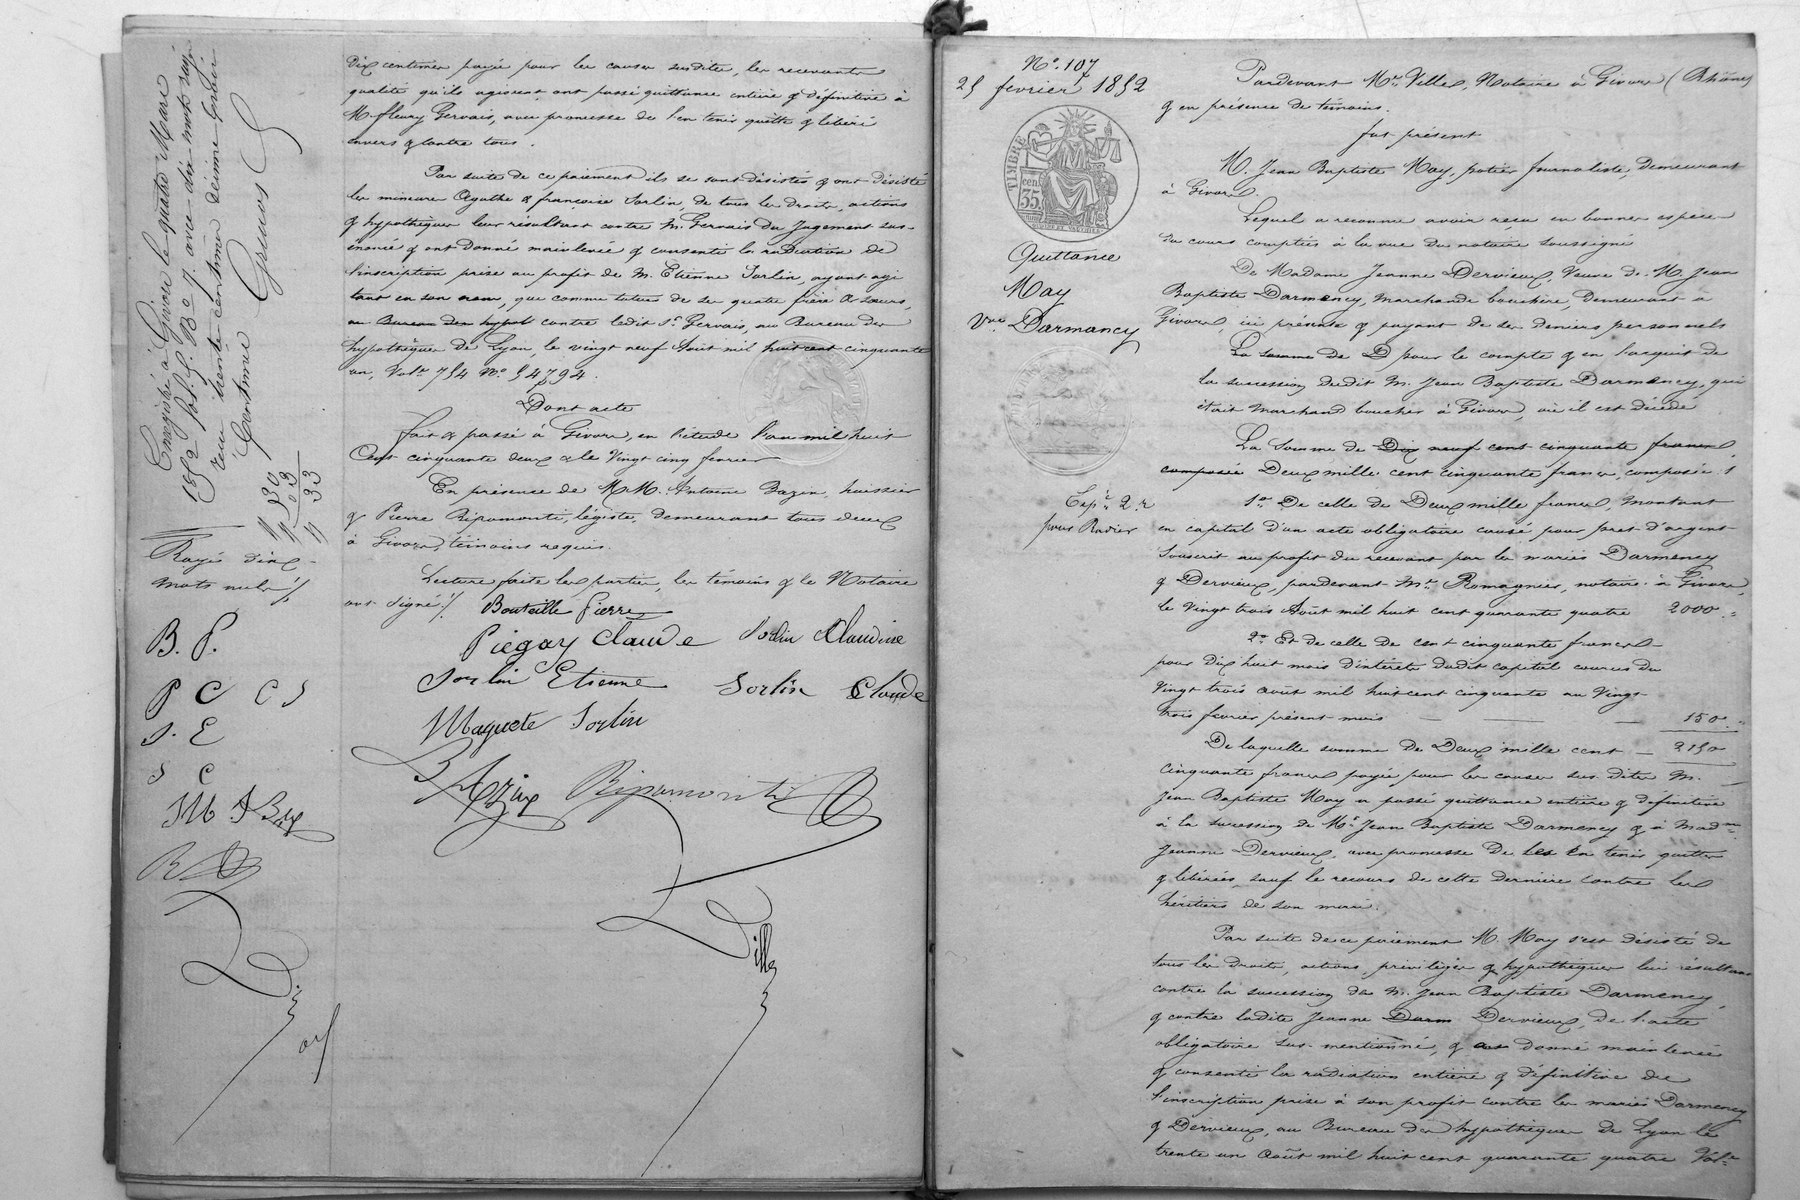 Dix centimes payée pour les causes susdites, les recevants
qualité qu'ils agissent, ont passé quittance entière & définitive à
M. fleury Gervais, avec promesse de l'en tenir quitte & libéré
envers & contre tous.
Par suite de ce paiement ils se sont désistés & ont désisté
les mineures Agathe & françoise Sorlin, de tous les droits, actions
& hypothèques leur résultant contre M. Gervais du Jugement sus-
énoncé & ont donné mainlevée & consenti la radiation de
l'inscription prise au profit de M. Etienne Sorlin, ayant agi
tant en son nom, que comme tuteur de ses quatre frère & sœurs,
au Bureau des hypot contre ledit Sr. Gervais, au Bureau des
hypothèques de Lyon, le vingt neuf Août mil huit cent cinquante
un, Vol. 754 No. 54794.
Dont acte
fait & passé à Givors, en l'étude l'an mil huit
Cent cinquante deux & le Vingt cinq février
En présence de MM. Antoine Bazin, huissier
& Pierre Ripamonti, légiste, demeurant tous deux
à Givors, témoins requis.
Lecture faite les parties, les témoins & le Notaire
ont signé ./.
Bouteille Pierre
Piégay Claude Sorlin Claudine
Sorlin Etienne Sorlin Claude
Maguete Sorlin
BAzin Ripamonti
Ville
Enregistré à Givors le quatre Mars
1852 fol. 5. Ro C 7. avec dix mots rayés
reçu trente centimes décime trois
Centimes Gruos
" 30
" 03
" 33
Rayés dix
mots nuls ./.
B. P.
P C C S
S. E
S C
M S Bz
R
No. 107
25 février 1852
TIMBRE
35 cen.
Quittance
May
Vve Darmancy
Exp. 2. r
pour Radier
Pardevant Me. Ville, Notaire à Givors (Rhône)
& en présence de témoins.
fut présent
M. Jean Baptiste May, potier Journaliste, demeurant
à Givors.
Lequel a reconnu avoir reçu en bonnes espèces
du cours comptées à la vue du notaire soussigné
De Madame Jeanne Dervieux, Veuve de M. Jean
Baptiste Darmency, marchande bouchère, demeurant à
Givors, ici présente & payant de ses deniers personnels
La somme de D pour le compte & en l'acquit de
la succession dudit M. Jean Baptiste Darmency, qui
était marchand boucher à Givors, où il est décédé
La Somme de Dix neuf cent cinquante francs
composée Deux mille cent cinquante francs, composée :
1o. De celle de Deux mille francs, montant
en capital d'un acte obligatoire causé pour prêt d'argent
Souscrit au profit du recevant par les mariés Darmency
& Dervieux, pardevant Me. Romagnier, notaire à Givors,
le Vingt trois Août mil huit cent quarante quatre 2000.
2o. Et de celle de cent cinquante francs
pour dix huit mois d'intérêts dudit capital courus du
Vingt trois août mil huit cent cinquante au Vingt
trois février présent mois 150.
De laquelle somme de Deux mille cent — 2150
cinquante francs payée pour les causes sus dites M.
Jean Baptiste May a passé quittance entière & définitive
à la succession de Mr. Jean Baptiste Darmency & à Made
Jeanne Dervieux, avec promesse de les en tenir quittes
& libérées, sauf le recours de cette dernière contre les
héritiers de son mari.
Par suite de ce paiement M. May s'est désisté de
tous les droits, actions, privilèges & hypothèques lui résultans
contre la succession de M. Jean Baptiste Darmency,
& contre ladite Jeanne Darm Dervieux, de l'acte
obligatoire sus-mentionné, & a donné mainlevée
& consenti la radiation entière & définitive de
l'inscription prise à son profit contre les mariés Darmency
& Dervieux, au Bureau des hypothèques de Lyon le
trente un Août mil huit cent quarante quatre Vol.